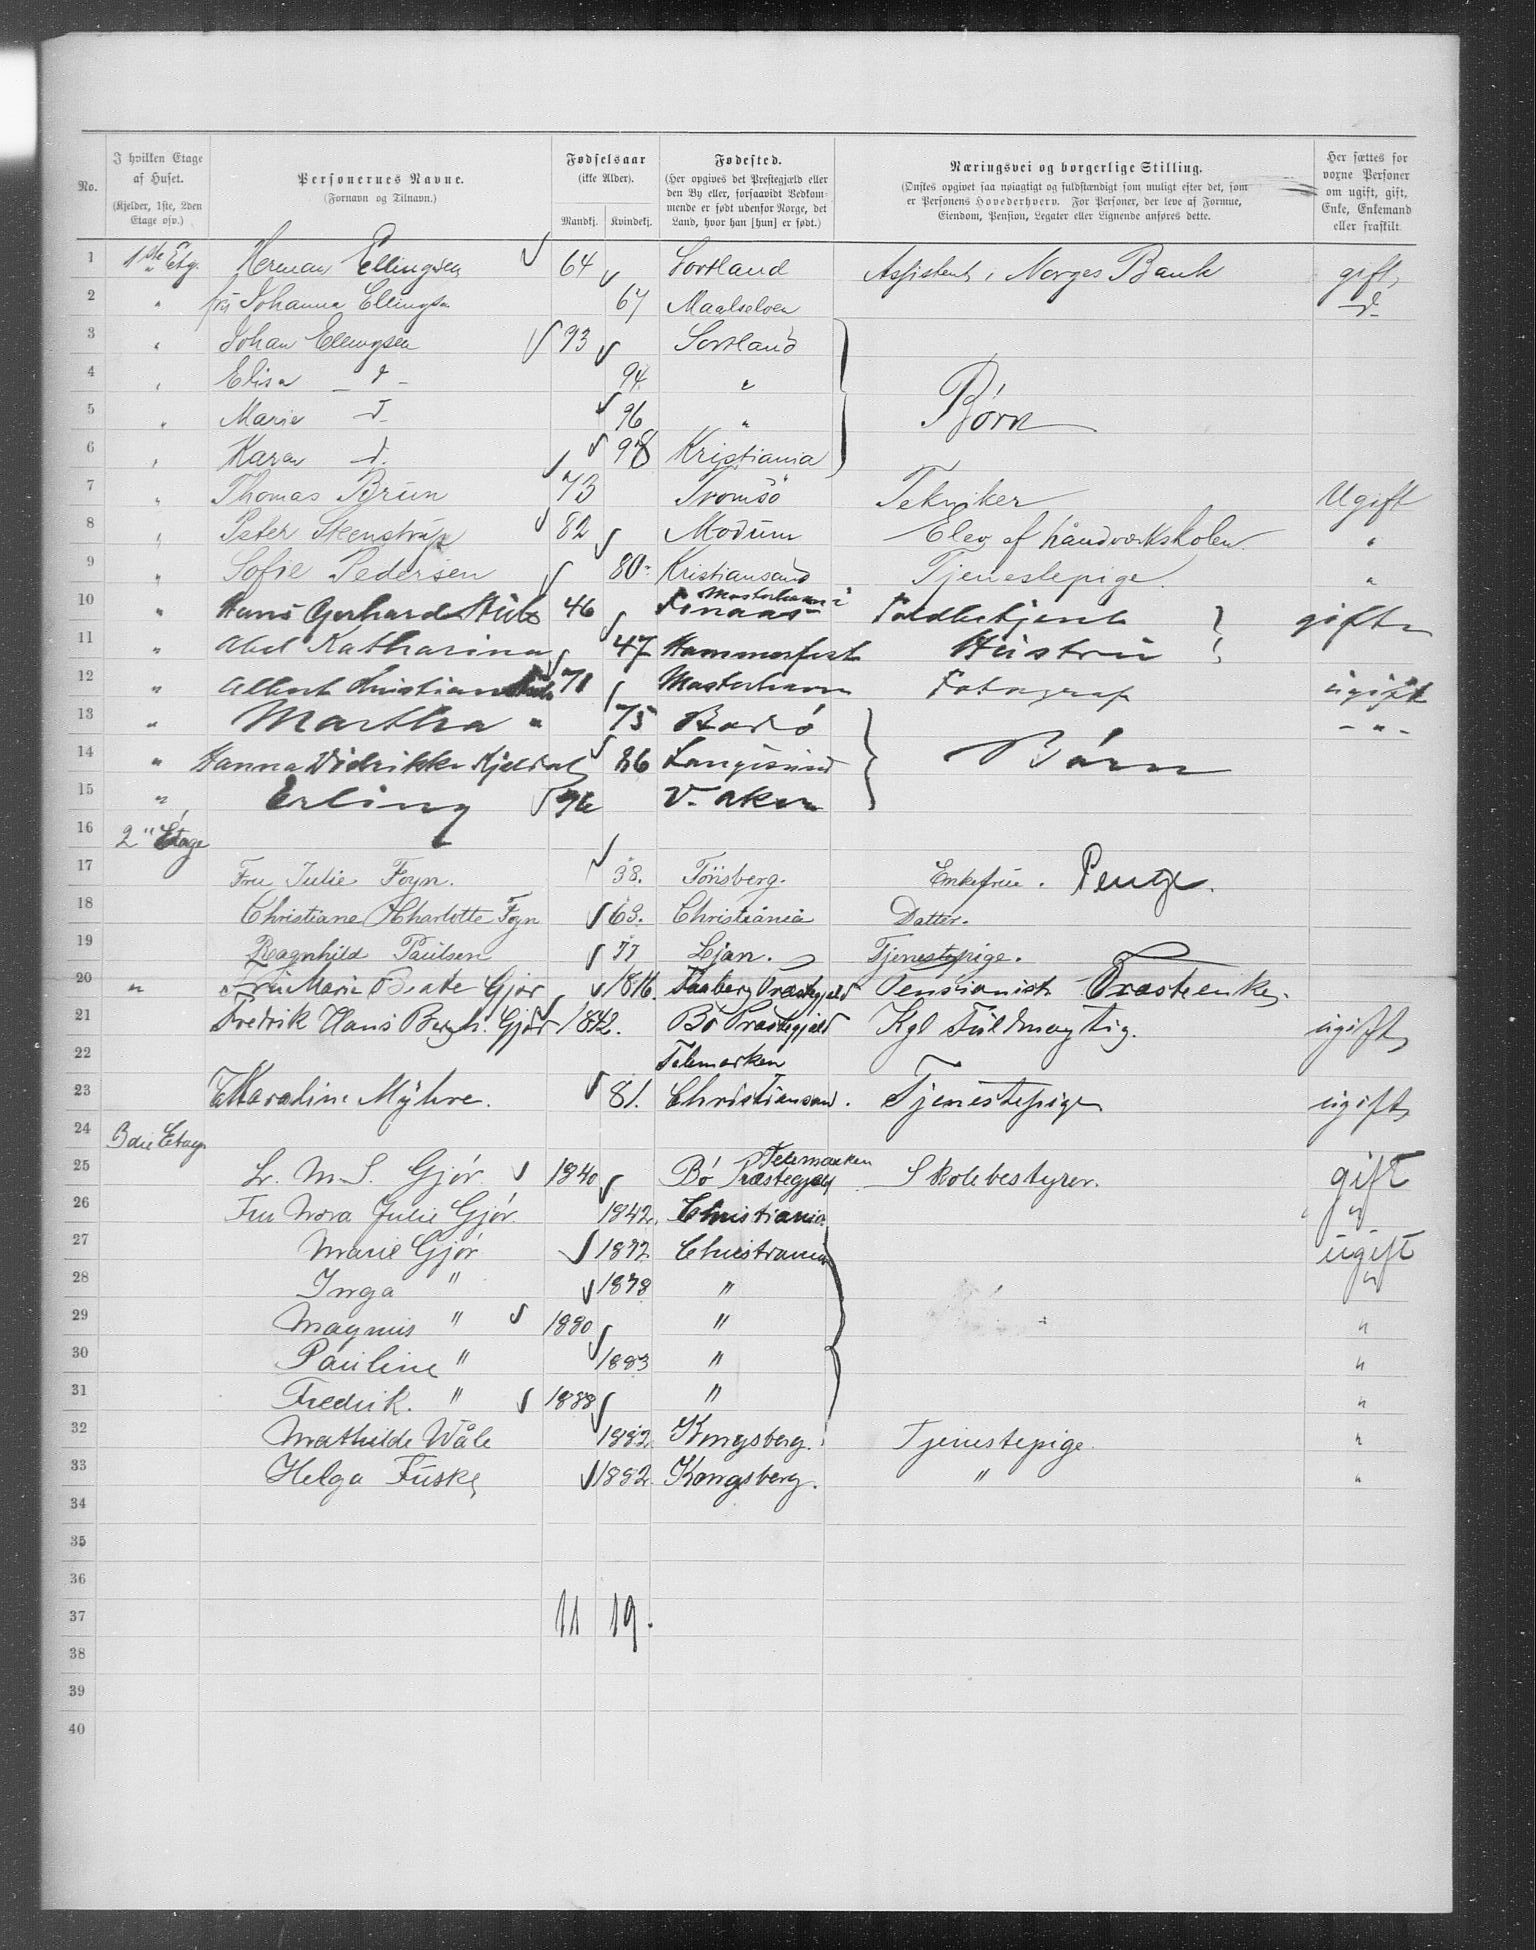 No. | I hvilken Etage af Huset. (Kjelder, 1ste, 2den Etage osv.) | Personernes Navne. (Fornavn og Tilnavn.) | Fødselsaar (ikke Alder). Mandkj. Kvindekj. | Fødested. (Her opgives det Prestegjæld eller den By eller, forsaavidt Vedkommende er født udenfor Norge, det Land, hvor han [hun] er født.) | Næringsvei og borgerlige Stilling. (Ønskes opgivet saa nøiagtigt og fuldstændigt som muligt efter det, som er Personens Hovederhverv. For Personer, der leve af Formue, Eiendom, Pension, Legater eller Lignende anføres dette. | Her sættes for voxne Personer om ugift, gift, Enke, Enkemand eller fraskilt.
1 1ste Etg. Herman Ellingsen 64 Sortland Assistent i Norges Bank gift
2 " fru Johanna Ellingsen 67 Maalselven d
3 " Johan Ellingsen 93 Sortland
4 " Elisa d 94 "
5 " Marie d 96 " Børn
6 " Karen d. 98 Kristiania
7 " Thomas Brun 73 Tromsö Tekniker Ugift
8 " Peter Steenstrup 82 Modum Elev af håndværkskolen "
9 " Sofie Pedersen 80 Kristiansand Tjenestepige "
10 " Hans Gerhard 46 Masterhavn i Finaas Toldbetjent gift
11 " Abel Katharina 47 Hammerfest Hustru
12 " Albert Christian 71 Masterhavn Fotograf ugift
13 " Martha " 75 Bodö - " -
14 " Hanna Didrikke 86 Langesund Børn
15 " Erling 96 V. Aker
16 2" Etage
17 Fru Julie Foyn. 38. Tönsberg. Enkefrue. Penge.
18 Christiane Charlotte Foyn 63. Christiania Datter.
19 Ragnhild Paulsen 77 Ljan. Tjenestepige.
20 " Fru Marie Beate Gjör 1816. Faaberg Præstegjeld Pensionist Præsteenke.
21 Fredrik Hans Bergh. Gjör 1842. Bö Præstegjeld Kgl Fuldmægtig. ugift
22 Telemarken
23 Karoline Myhre. 81. Christiansand. Tjenestepige ugift
24 3die Etage
25 L. M. S. Gjör. 1840 Bö Præstegjeld Telemarken Skolebestyrer. gift
26 Fru Nora Julie Gjör. 1842. Christiania "
27 Marie Gjör 1872 Christiania ugift
28 Inga " 1878 " "
29 Magnus " 1880 " "
30 Pauline " 1883 " "
31 Fredrik. " 1888 " "
32 Mathilde Wåle 1882 Kongsberg. Tjenestepige. "
33 Helga Fuske 1882. Kongsberg. " "
34
35
36
37 11 19.
38
39
40